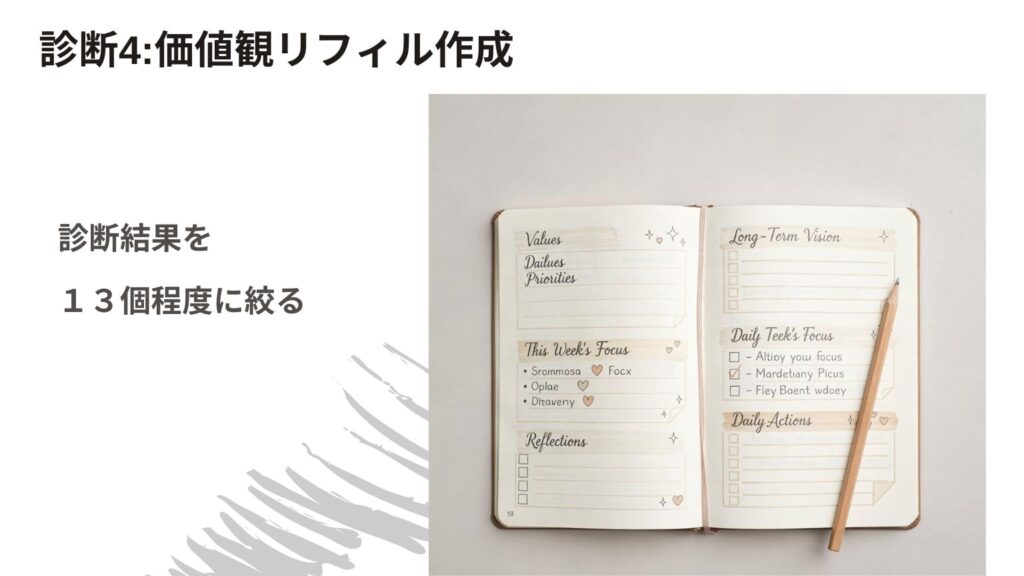 診断4:価値観リフィル作成
診断結果を
１３個程度に絞る
Values
Dailues
Priorities
This Week's Focus
• Srommosa Focx
• Oplae
• Dtraverıy
Reflections
19
Long-Term Vision
Daily Teek's Focus
- Altipy you focus
- Mardetiany Picus
- Fley Baent wdoey
Daily Actions